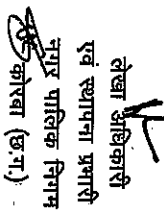 लेखा अधिकारी
एवं स्थापना प्रभारी
नगर पालिक निगम
कोरबा (छ.ग.)